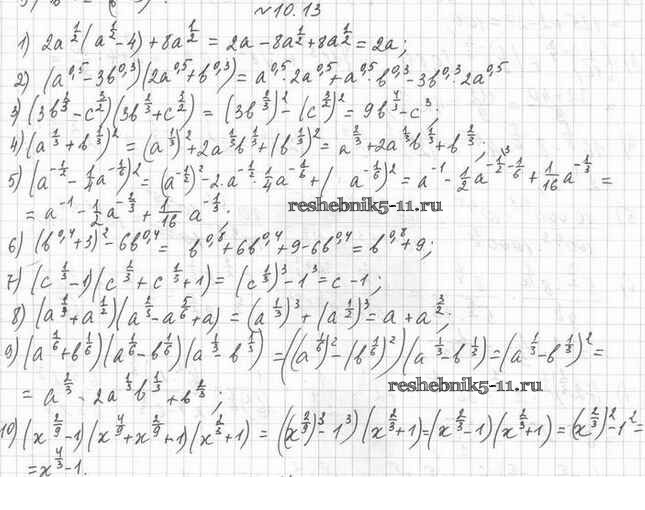 №10.13
1) 2a^{1/2}(a^{1/2}-4)+8a^{1/2} = 2a-8a^{1/2}+8a^{1/2}=2a;
2) (a^{0,5}-3b^{0,3})(2a^{0,5}+b^{0,3})=a^{0,5}·2a^{0,5}+a^{0,5}·b^{0,3}-3b^{0,3}·2a^{0,5}
3) (3b^{2/3}-c^{3/2})(3b^{2/3}+c^{3/2}) = (3b^{2/3})^2-(c^{3/2})^2=9b^{4/3}-c^3;
4) (a^{1/3}+b^{1/3})^2=(a^{1/3})^2+2a^{1/3}b^{1/3}+(b^{1/3})^2=a^{2/3}+2a^{1/3}b^{1/3}+b^{2/3};
5) (a^{-1/2}-1/4a^{-1/6})^2=(a^{-1/2})^2-2·a^{-1/2}·1/4a^{-1/6}+( a^{-1/6})^2=a^{-1}-1/2a^{-1/2-1/6}+1/16a^{-1/3} =
=a^{-1}-1/2a^{-2/3}+1/16a^{-1/3};
reshebnik5-11.ru
6) (b^{0,4}+3)^2-6b^{0,4}= b^{0,8}+6b^{0,4}+9-6b^{0,4}=b^{0,8}+9;
7) (c^{1/3}-1)(c^{2/3}+c^{1/3}+1)=(c^{1/3})^3-1^3=c-1;
8) (a^{1/3}+a^{1/2})(a^{2/3}-a^{5/6}+a) =(a^{1/3})^3+(a^{1/2})^3=a+a^{3/2};
9) (a^{1/6}+b^{1/6})(a^{1/6}-b^{1/6})(a^{1/3}-b^{1/3}) =((a^{1/6})^2-(b^{1/6})^2)(a^{1/3}-b^{1/3})=(a^{1/3}-b^{1/3})^2=
= a^{2/3}-2a^{1/3}b^{1/3}+b^{2/3};
reshebnik5-11.ru
10) (x^{2/9}-1)(x^{4/9}+x^{2/9}+1)(x^{2/3}+1) = ((x^{2/9})^3-1^3)(x^{2/3}+1)=(x^{2/3}-1)(x^{2/3}+1)=(x^{2/3})^2-1^2=
=x^{4/3}-1.